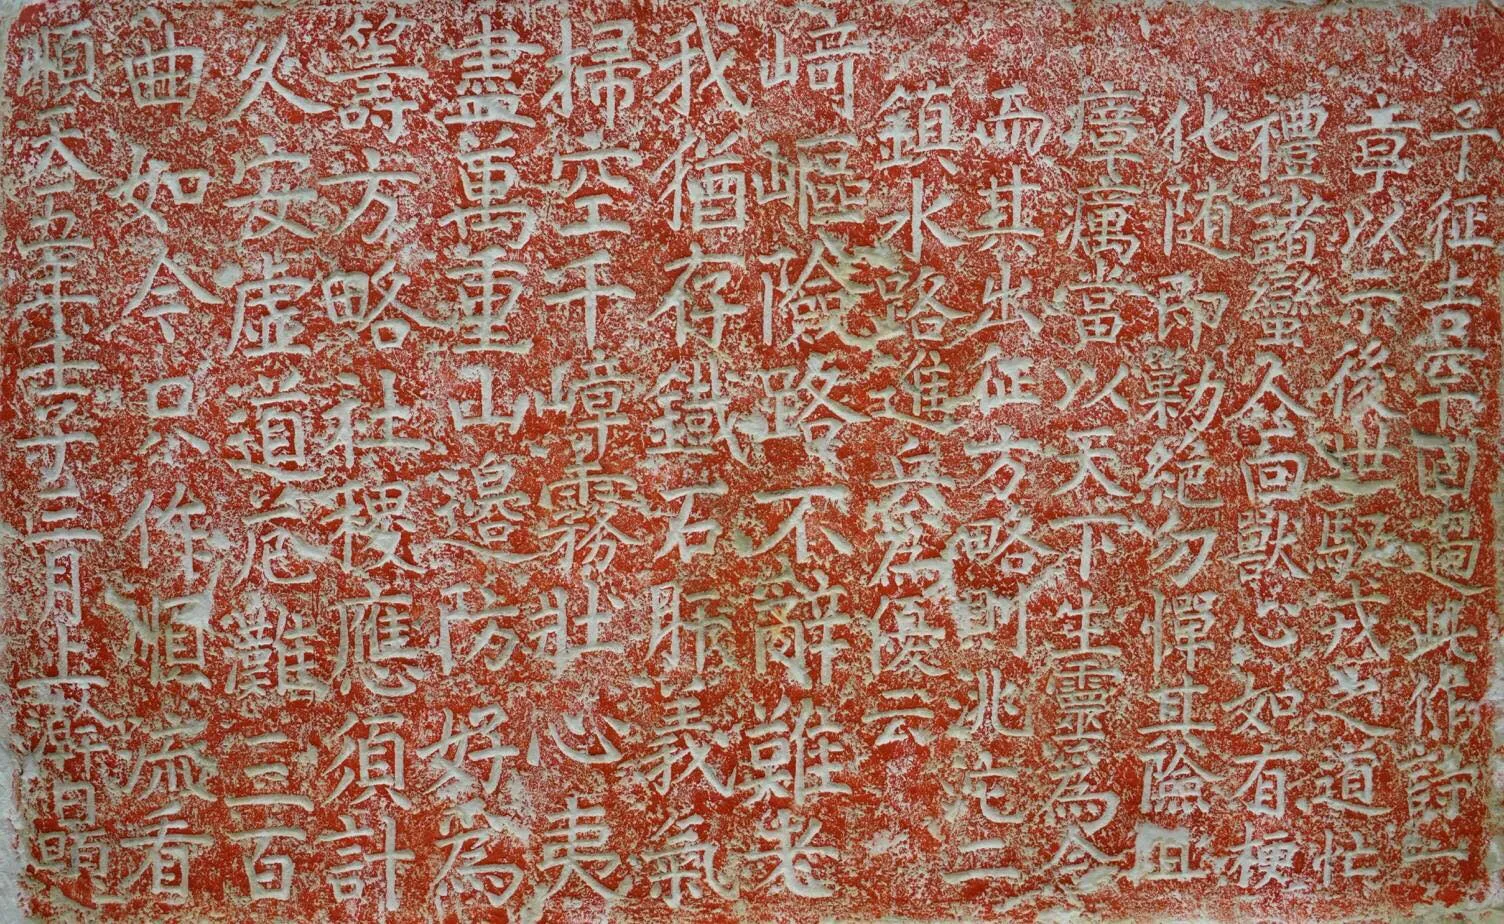 予征吉罕回過此作詩一
章以示後世馭戎之道忙
禮諸蠻人面獸心如有梗
化随即勦絶勿憚其險阻
瘴癘當以天下生靈為念
而其出征方略則洮沱二
鎮水路進兵為優云
崎嶇險路不辭難老
我猶存鐵石肝義氣
掃空千嶂霧壯心夷
盡萬重山邉防好為
籌方略社稷應須計
久安虚道危灘三百
曲如今只作順流看
順天五年壬子三月上澣日題